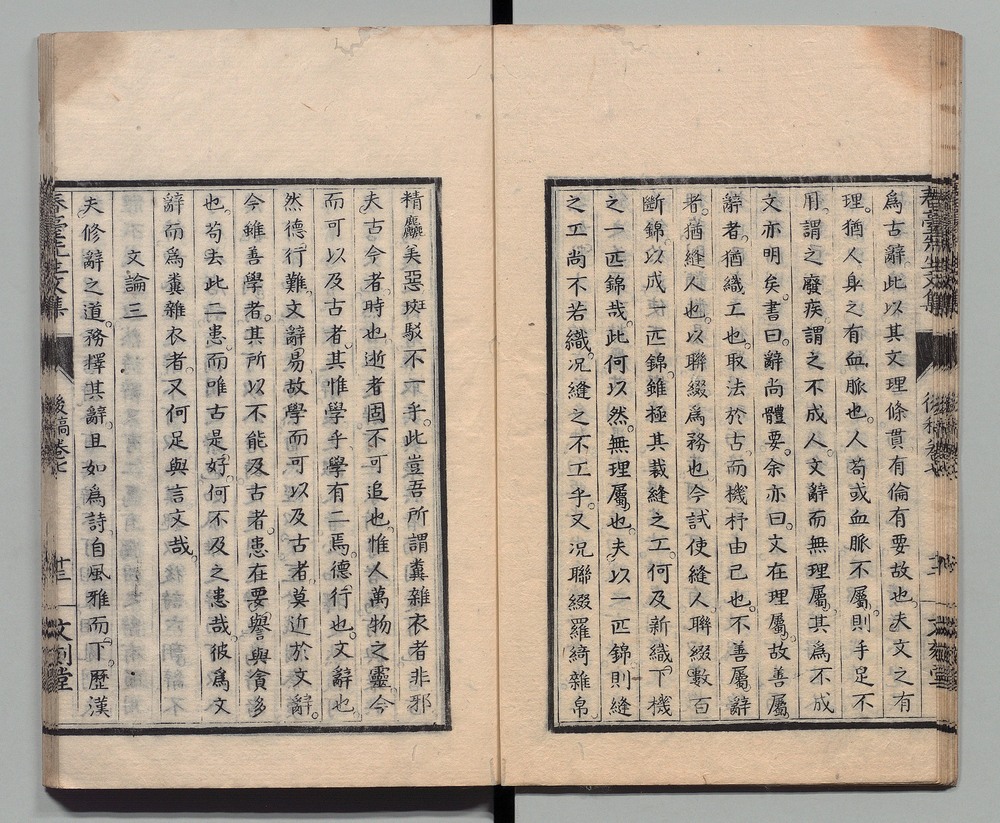 爲古辭此以其文理條貫有倫有要故也。夫文之有
理猶人身之有血脈也。人苟或血脈不屬。則手足不
用。謂之廢疾。謂之不成人。文辭而無理屬。其爲不成
文亦明矣。書曰。辭尚體要。余亦曰。文在理屬。故善屬
辭者。猶織工也。取法於古。而機杼由己也。不善屬辭
者。猶縫人也。以聯綴爲務也。今試使縫人聯綴數百
斷錦。以成一匹錦。雖極其裁縫之工。何及新織下機
之一匹錦哉。此何以然。無理屬也。夫以一匹錦則縫
之工尚不若織。况縫之不工乎。又况聯綴羅綺雜帛。
精麤美惡斑駁不一乎。此豈吾所謂糞雜衣者非邪
夫古今者。時也。逝者固不可追也。惟人萬物之靈。今
而可以及古者。其惟學乎。學有二焉。德行也。文辭也。
然德行難。文辭易。故學而可以及古者。莫近於文辭。
今雖善學者。其所以不能及古者。患在要譽與貪多
也。苟去此二患。而唯古是好。何不及之患哉。彼爲文
辭而爲糞雜衣者。又何足與言文哉。
文論三
夫修辭之道。務擇其辭。且如爲詩。自風雅而下。歷漢
春臺先生文集
後稿卷七
十二
文刻堂
春臺先生文集
後稿卷七
十三
文刻堂